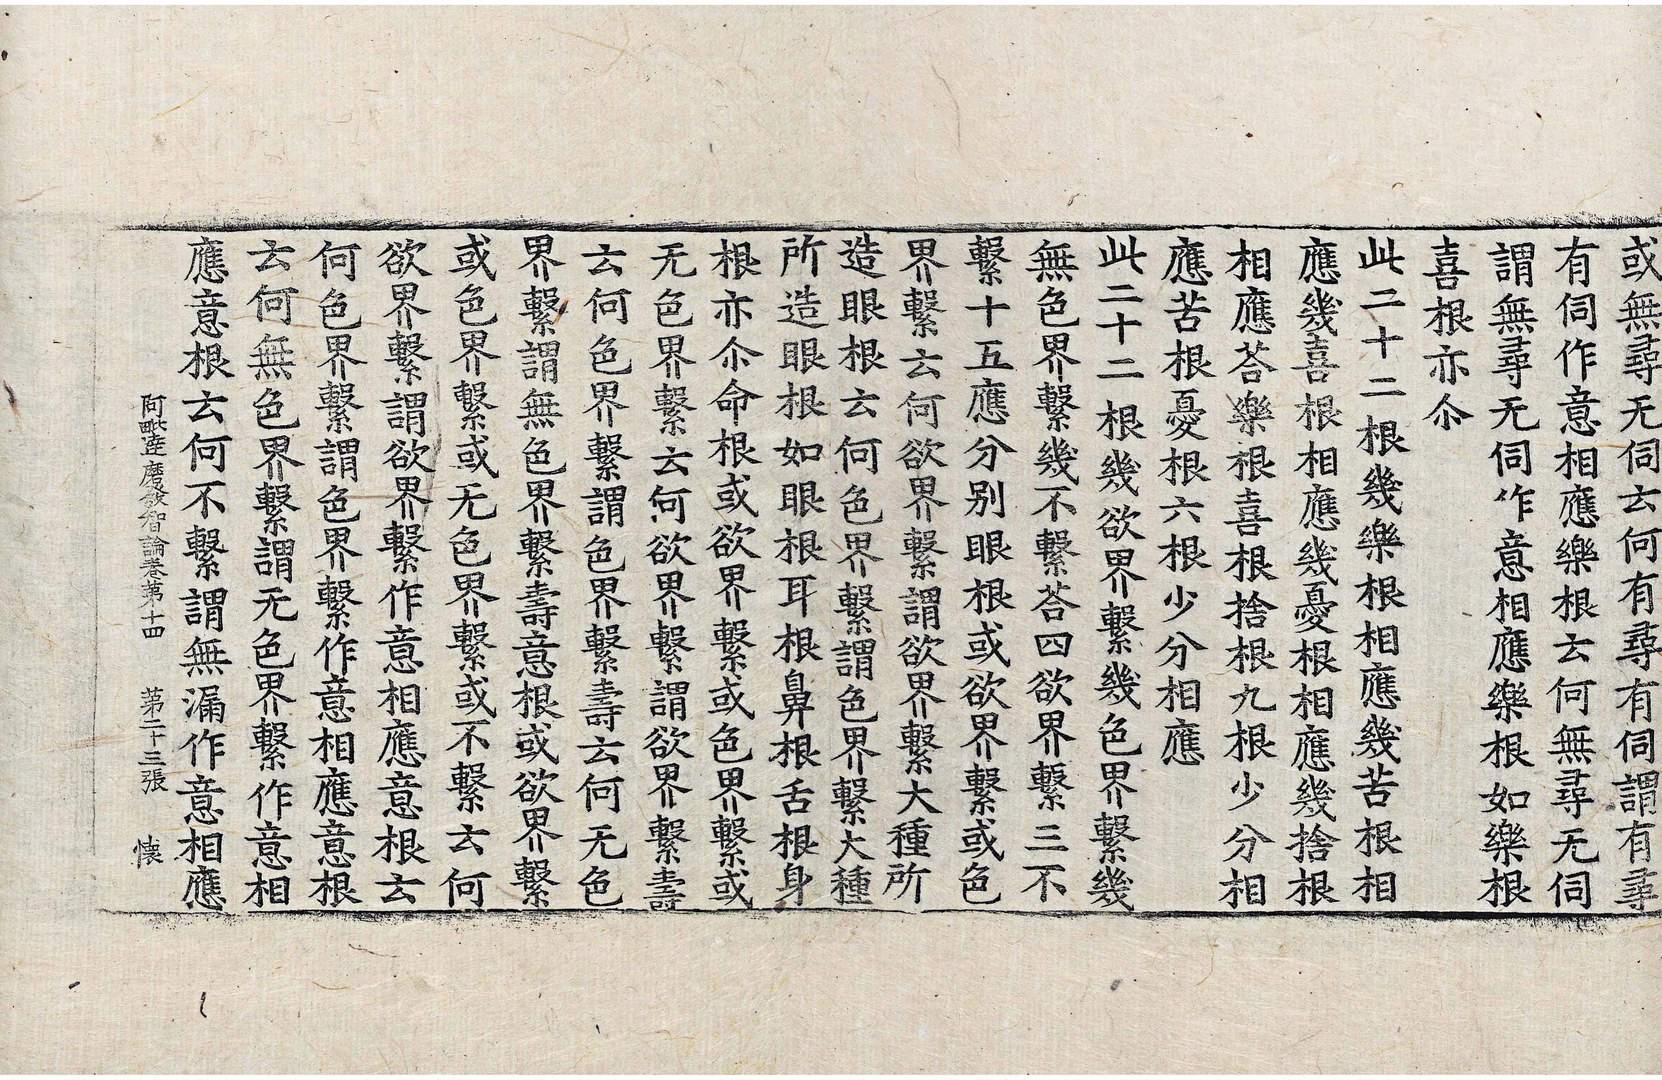 或無尋无伺云何有尋有伺謂有尋
有伺作意相應樂根云何無尋无伺
謂無尋无伺作意相應樂根如樂根
喜根亦尒
此二十二根幾樂根相應幾苦根相
應幾喜根相應幾憂根相應幾捨根
相應荅樂根喜根捨根九根少分相
應苦根憂根六根少分相應
此二十二根幾欲界繫幾色界繫幾
無色界繫幾不繫荅四欲界繫三不
繫十五應分別眼根或欲界繫或色
界繫云何欲界繫謂欲界繫大種所
造眼根云何色界繫謂色界繫大種
所造眼根如眼根耳根鼻根舌根身
根亦尒命根或欲界繫或色界繫或
无色界繫云何欲界繫謂欲界繫壽
云何色界繫謂色界繫壽云何无色
界繫謂無色界繫壽意根或欲界繫
或色界繫或无色界繫或不繫云何
欲界繫謂欲界繫作意相應意根云
何色界繫謂色界繫作意相應意根
云何無色界繫謂无色界繫作意相
應意根云何不繫謂無漏作意相應
阿毗達磨發智論卷第十四 第二十三張 懐